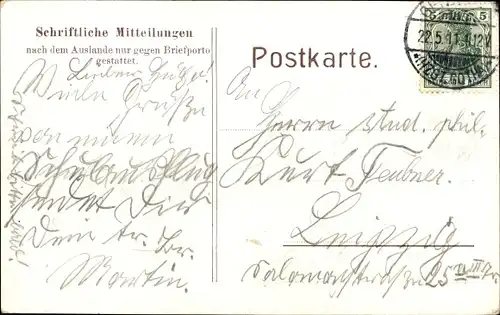 Schriftliche Mitteilungen
nach dem Auslande nur gegen Briefporto
gestattet.
Postkarte.
5 5
22.5.11.1-12V
Lieber
Viele Grüße
von meinem
Schulausflug
sendet Dir
Dein tr. Br.
Martin.
An
Herrn stud. phil.
Kurt Teubner.
Leipzig
Salomonstraße 25 III r.